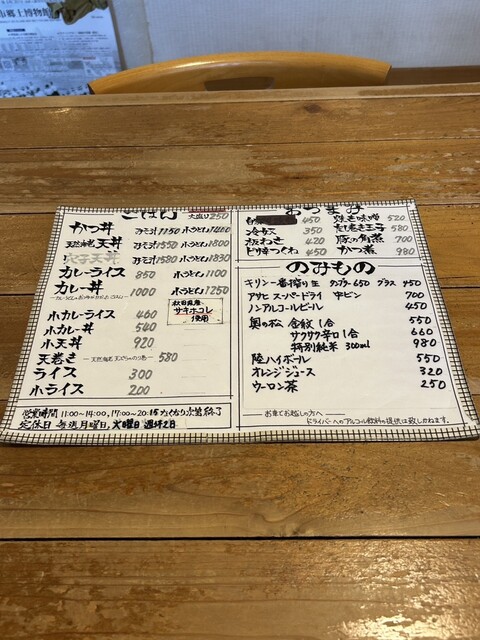 市郷土博物館
ごはん 大盛り250
かつ丼 みそ汁1150 小うどん1400
天然海老天丼 みそ汁1550 小うどん1800
穴子天丼 みそ汁1580 小うどん1830
カレーライス 850 小うどん1100
カレー丼 1000 小うどん1250
秋田県産
サキホコレ
使用
小カレーライス 460
小カレー丼 540
小天丼 920
天巻き 580
ライス 300
小ライス 200
営業時間 11:00~14:00, 17:00~20:15 なくなり次第終了
定休日 毎週月曜日, 火曜日 週休2日
おつまみ
450
冷奴 350
板わさ 420
ピリ辛つくね 450
焼き味噌 520
だし巻き玉子 580
豚の角煮 700
かつ煮 980
のみもの
キリン一番搾り生 タンブラー650 グラス 450
アサヒ スーパードライ 中ビン 700
ノンアルコールビール 450
奥の松 金紋 1合 550
サクサク辛口 1合 660
特別純米 300ml 980
陸ハイボール 550
オレンジジュース 320
ウーロン茶 250
お車でお越しの方へ
ドライバーへのアルコール飲料の提供は致しかねます。